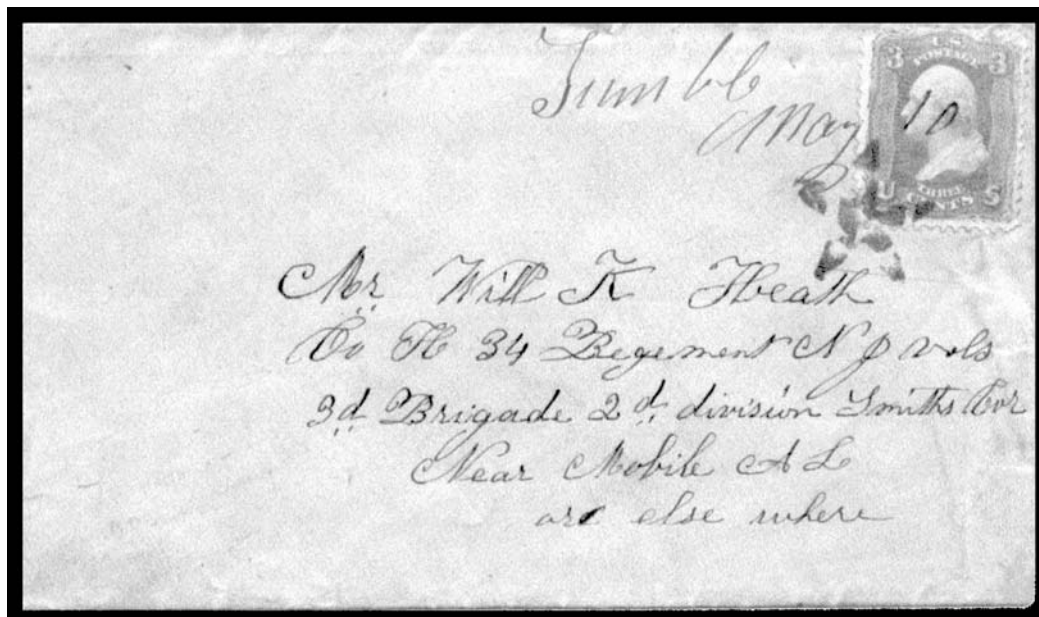 May 10
3 U.S. 3
POSTAGE
U S
THREE
CENTS
Mr Will K Heath
Co H 34 Regement N J vols
3d Brigade 2d division Smiths Cor
Near Mobile A L
are else where